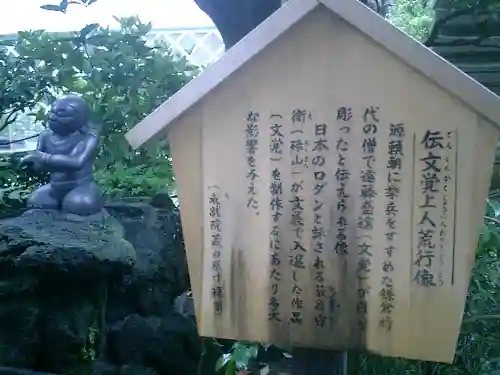 伝文覚上人荒行像
でんもんがくしょうにんあらぎょうぞう
源頼朝に挙兵をすすめた鎌倉時
代の僧で遠藤盛遠(文覚)が自
彫ったと伝えられる像
日本のロダンと称される荻原
衛(碌山)が文展で入選した作品
(文覚)を制作するにあたり多大
な影響を与えた。